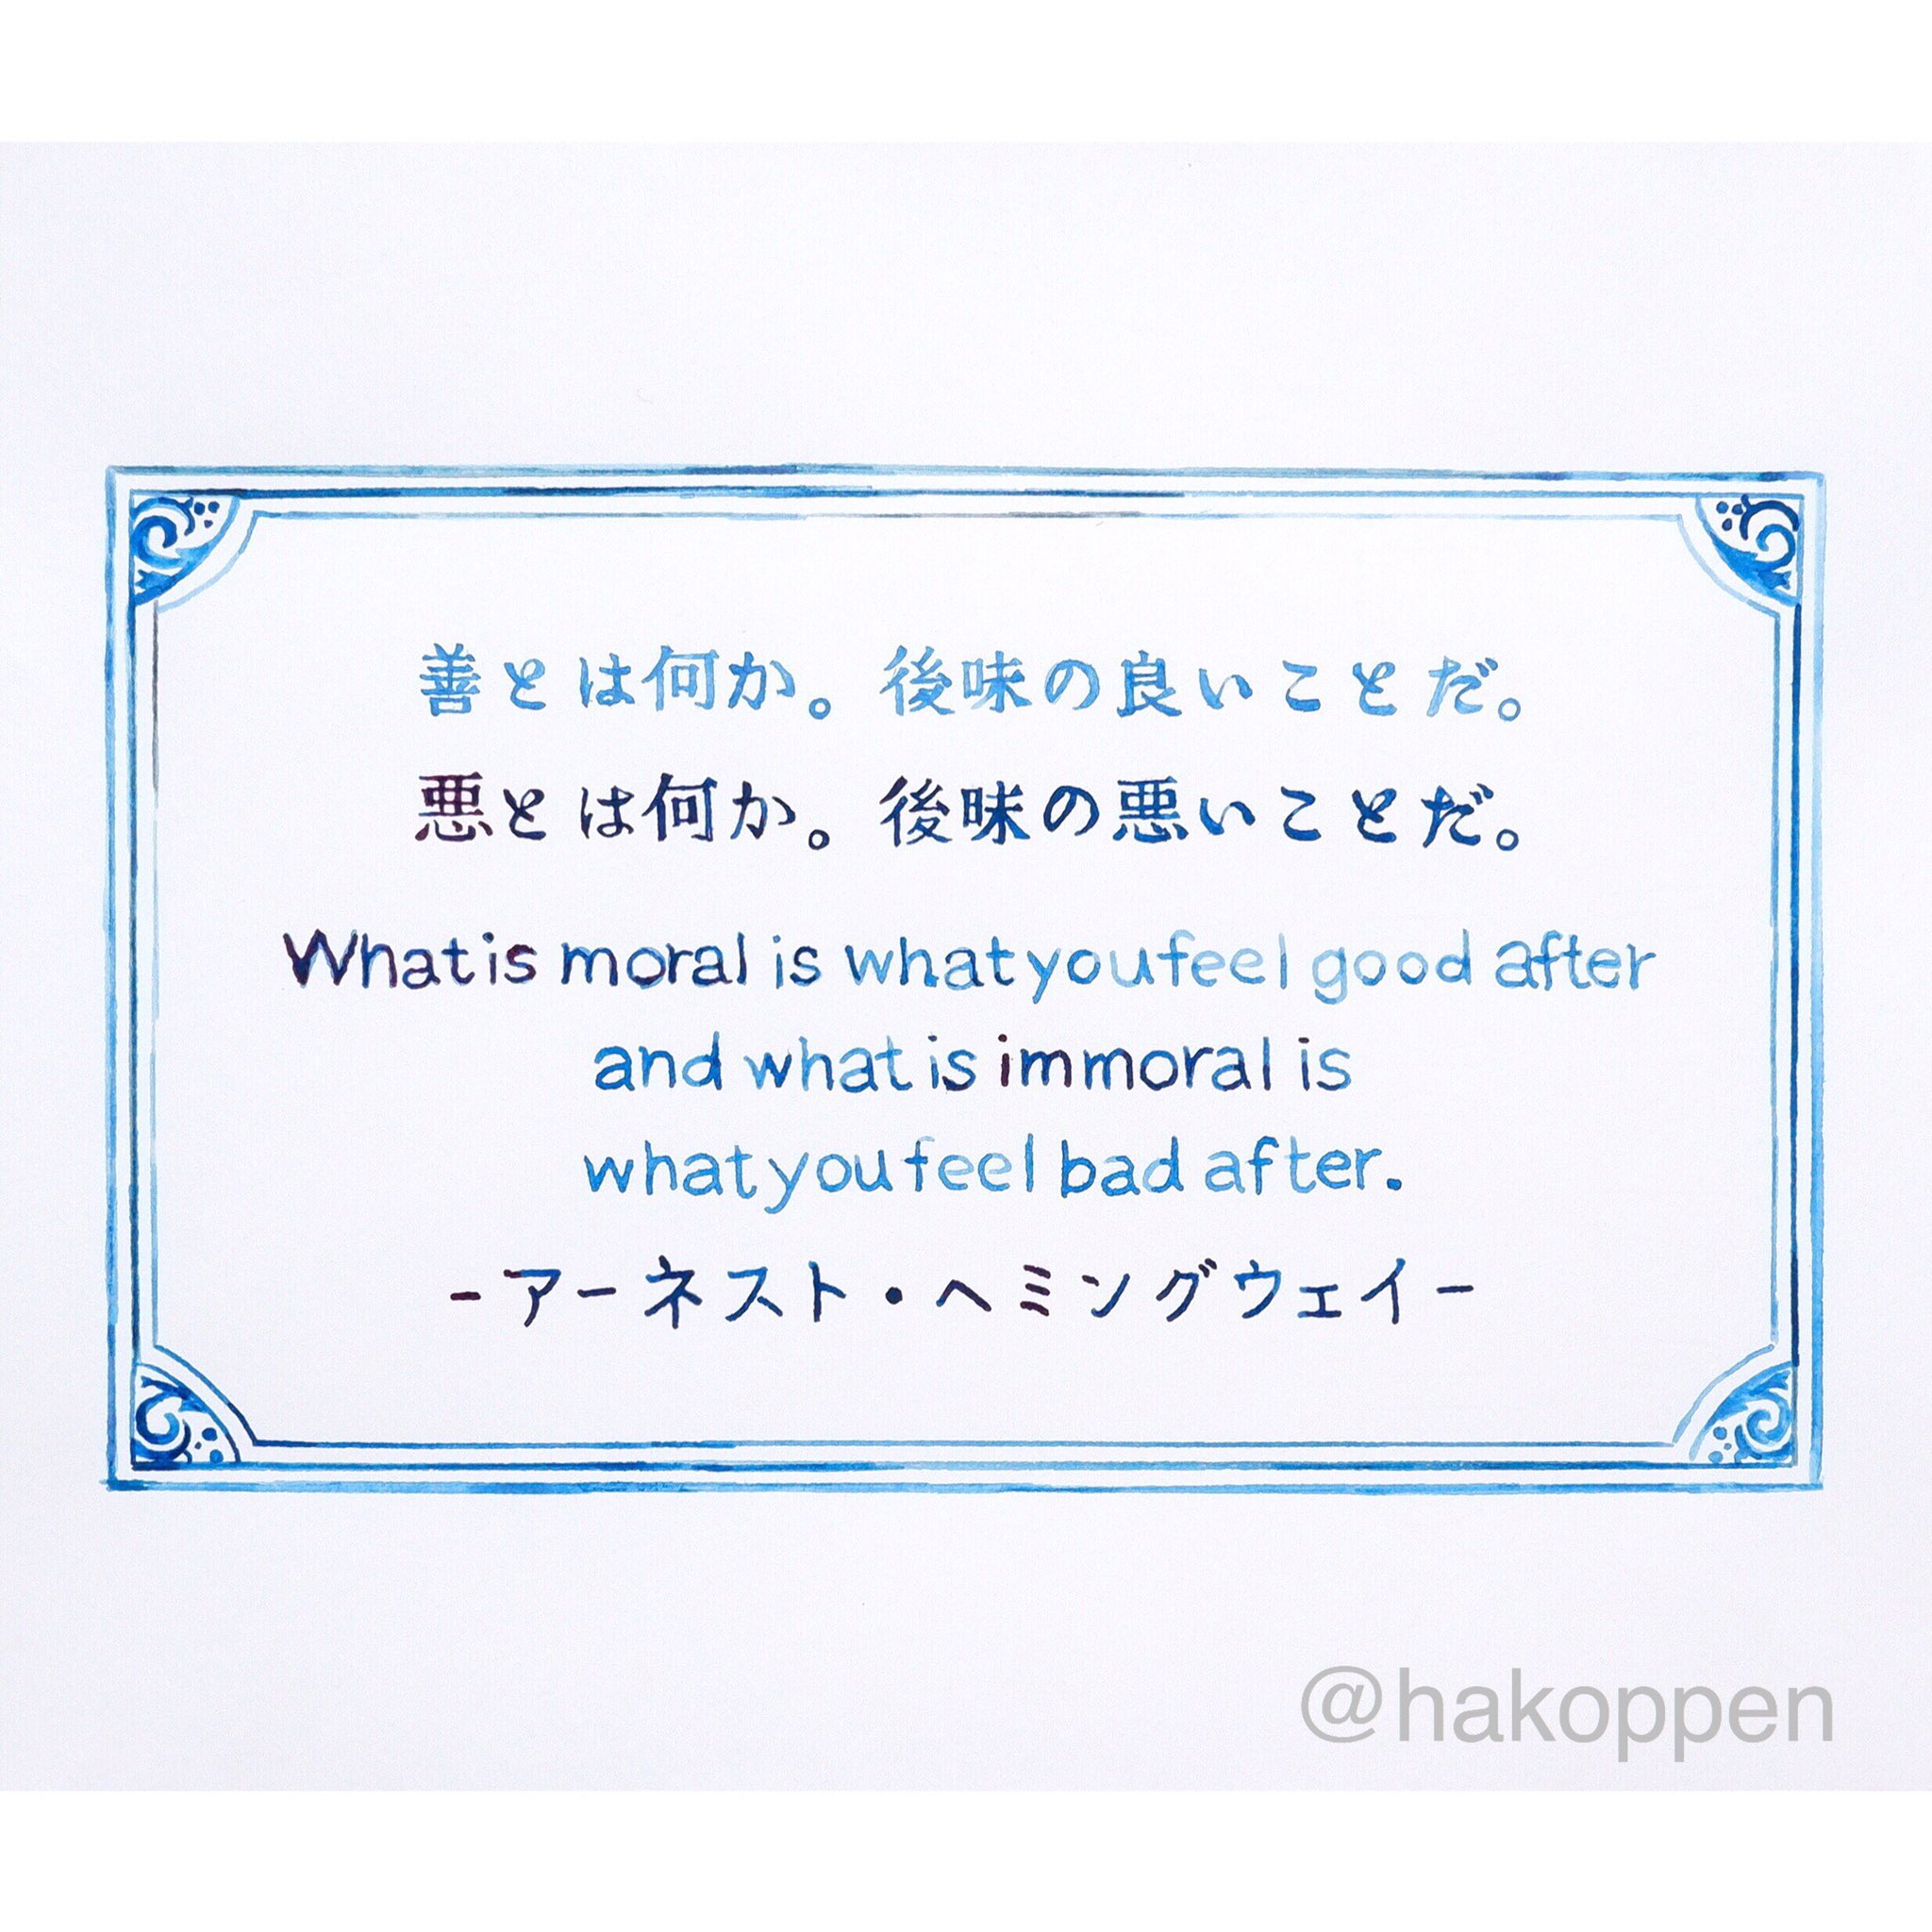 善とは何か。後味の良いことだ。
悪とは何か。後味の悪いことだ。
What is moral is what you feel good after
and what is immoral is
what you feel bad after.
-アーネスト・ヘミングウェイ-
@hakoppen